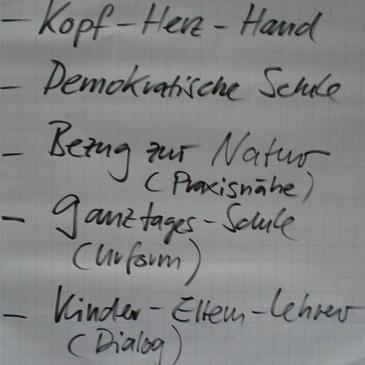 – Kopf-Herz-Hand
– Demokratische Schule
– Bezug zur Natur
(Praxisnähe)
– ganztages-Schule
(Urform)
– Kinder-Eltern-Lehrer
(Dialog)